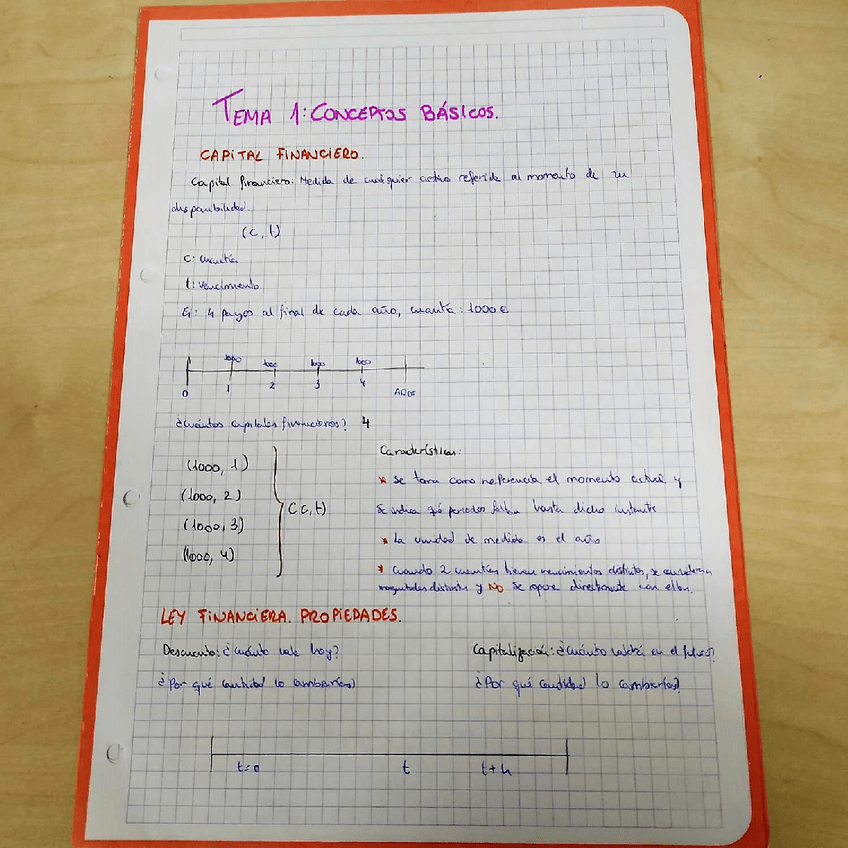 TEMA 1: CONCEPTOS BÁSICOS.
CAPITAL FINANCIERO.
Capital financiero: Medida de cualquier activo referida al momento de su
disponibilidad.
(c, t)
C: cuantía
t: vencimiento
Ej: 4 pagos al final de cada año, cuantía: 1000 €
1000 1000 1000 1000
0 1 2 3 4 AÑOS
¿Cuántos capitales financieros? 4
(1000, 1)
(1000, 2)
(1000, 3)
(1000, 4)
(C, t)
Características:
* Se toma como referencia el momento actual y
se indica qé periodos faltan hasta dicho instante
* La unidad de medida es el año
* Cuando 2 cuantías tienen vencimientos distintos, se consideran
magnitudes distintas y NO se opera directamente con ellas.
LEY FINANCIERA. PROPIEDADES.
Descuento: ¿Cuánto vale hoy?
¿Por qué cantidad lo cambiarías?
Capitalización: ¿Cuánto valdrá en el futuro?
¿Por qué cantidad lo cambiarías?
t=0 t t+h